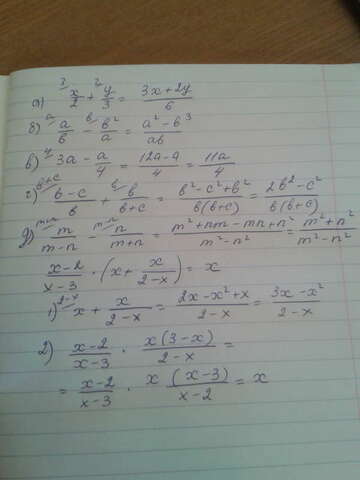 а) ³ x/2 + ² y/3 = (3x+2y)/6
б) ᵃ a/b - ᵇ b²/a = (a²-b³)/ab
в) ⁴ 3a - a/4 = (12a-a)/4 = 11a/4
г) ᵇ⁺ᶜ (b-c)/b + ᵇ b/(b+c) = (b²-c²+b²)/(b(b+c)) = (2b²-c²)/(b(b+c))
д) ᵐ⁺ⁿ m/(m-n) - ᵐ⁻ⁿ n/(m+n) = (m²+nm-mn+n²)/(m²-n²) = (m²+n²)/(m²-n²)
(x-2)/(x-3) · (x + x/(2-x)) = x
1) ²⁻ˣ x + x/(2-x) = (2x-x²+x)/(2-x) = (3x-x²)/(2-x)
2) (x-2)/(x-3) · x(3-x)/(2-x) =
= (x-2)/(x-3) · x(x-3)/(x-2) = x